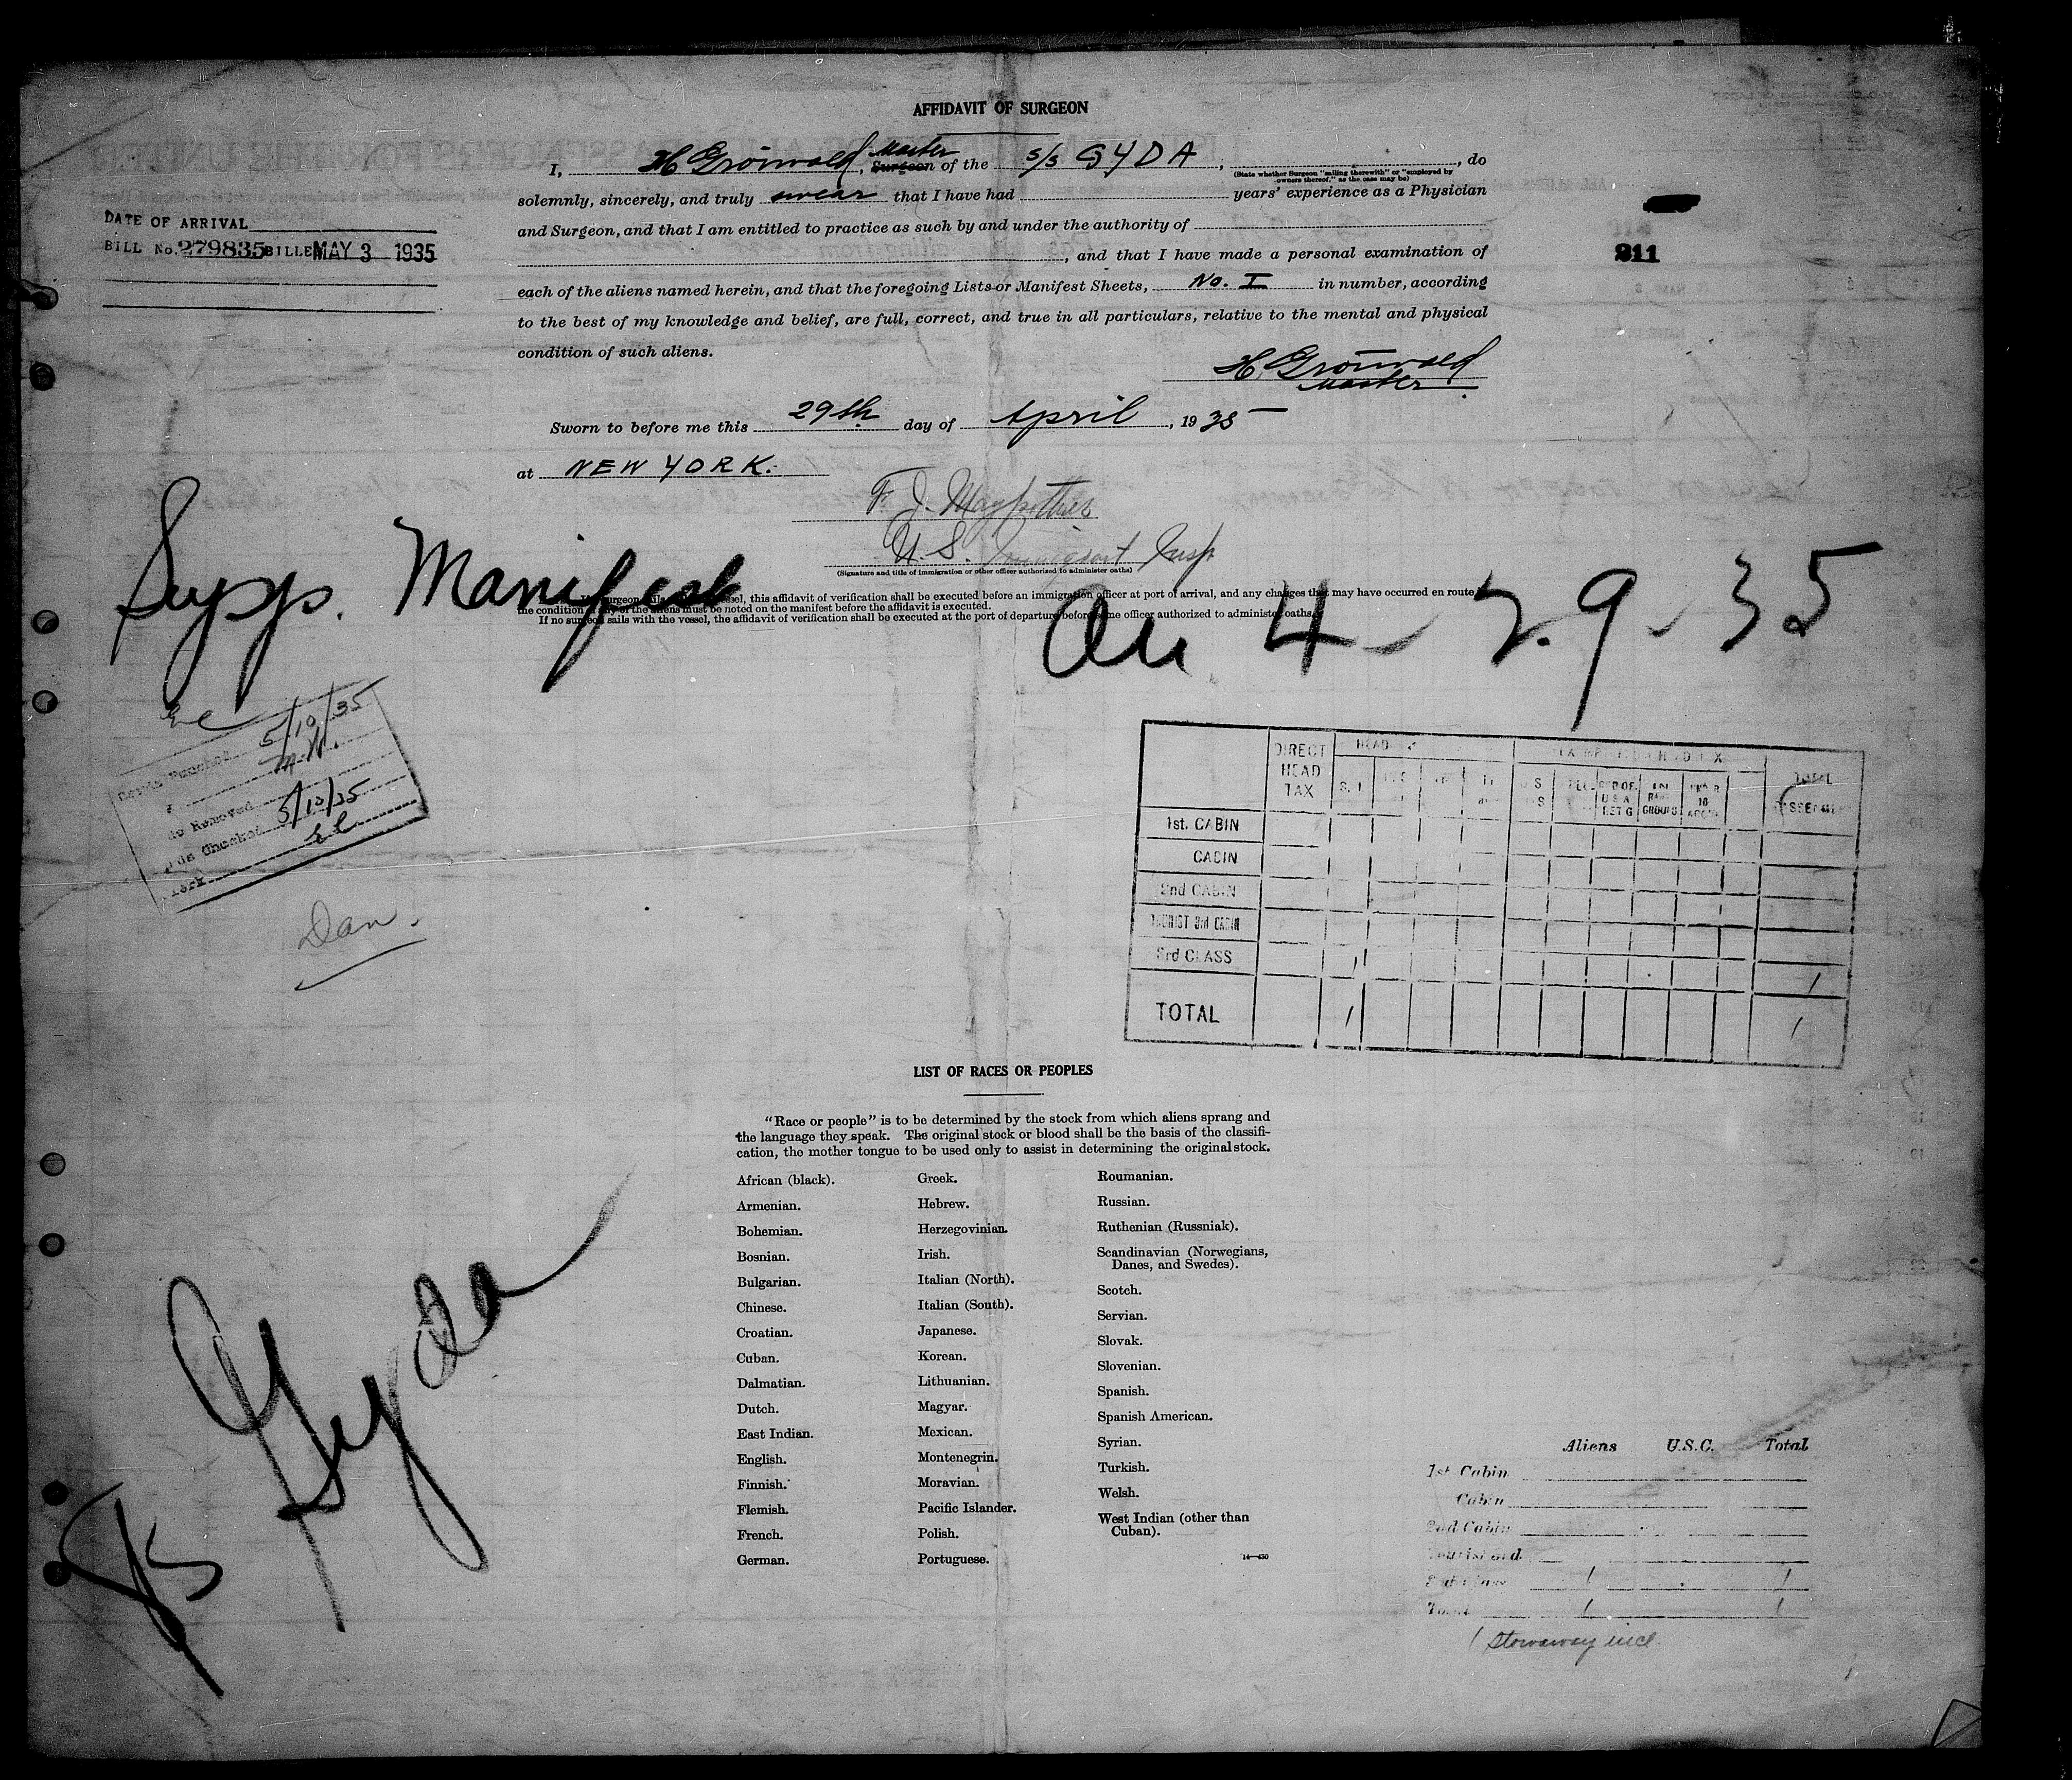 AFFIDAVIT OF SURGEON
I, H Grönwald, Master Surgeon of the S/S GYDA, , do
(State whether Surgeon "sailing therewith" or "employed by owners thereof," as the case may be)
solemnly, sincerely, and truly swear that I have had years' experience as a Physician
and Surgeon, and that I am entitled to practice as such by and under the authority of
, and that I have made a personal examination of
each of the aliens named herein, and that the foregoing Lists or Manifest Sheets, No. I in number, according
to the best of my knowledge and belief, are full, correct, and true in all particulars, relative to the mental and physical
condition of such aliens.
DATE OF ARRIVAL
BILL No. 279835 BILLE MAY 3 1935
211
H. Grönwald
Master
Sworn to before me this 29th day of April, 1935
at NEW YORK.
F. J.
U. S. Immigrant Insp
(Signature and title of immigration or other officer authorized to administer oaths)
surgeon sails vessel, this affidavit of verification shall be executed before an immigration officer at port of arrival, and any changes that may have occurred en route
the condition of any of the aliens must be noted on the manifest before the affidavit is executed.
If no surgeon sails with the vessel, the affidavit of verification shall be executed at the port of departure before some officer authorized to administer oaths.
Supp. Manifest
4-29-35
5/10/35
Removed
Checked 5/10/35
Dan.
DIRECT HEAD TAX
HEAD
S. I
TOTAL
1st. CABIN
CABIN
2nd CABIN
TOURIST 3rd CABIN
3rd CLASS 1 1
TOTAL 1 1
LIST OF RACES OR PEOPLES
"Race or people" is to be determined by the stock from which aliens sprang and
the language they speak. The original stock or blood shall be the basis of the classifi-
cation, the mother tongue to be used only to assist in determining the original stock.
African (black).
Armenian.
Bohemian.
Bosnian.
Bulgarian.
Chinese.
Croatian.
Cuban.
Dalmatian.
Dutch.
East Indian.
English.
Finnish.
Flemish.
French.
German.
Greek.
Hebrew.
Herzegovinian.
Irish.
Italian (North).
Italian (South).
Japanese.
Korean.
Lithuanian.
Magyar.
Mexican.
Montenegrin.
Moravian.
Pacific Islander.
Polish.
Portuguese.
Roumanian.
Russian.
Ruthenian (Russniak).
Scandinavian (Norwegians,
Danes, and Swedes).
Scotch.
Servian.
Slovak.
Slovenian.
Spanish.
Spanish American.
Syrian.
Turkish.
Welsh.
West Indian (other than
Cuban).
14—430
SS Gyda
Aliens U.S.C. Total
1st Cabin
Cabin
2nd Cabin
Tourist 3rd
3rd Class 1 1
Total 1 1
1 stowaway incl.